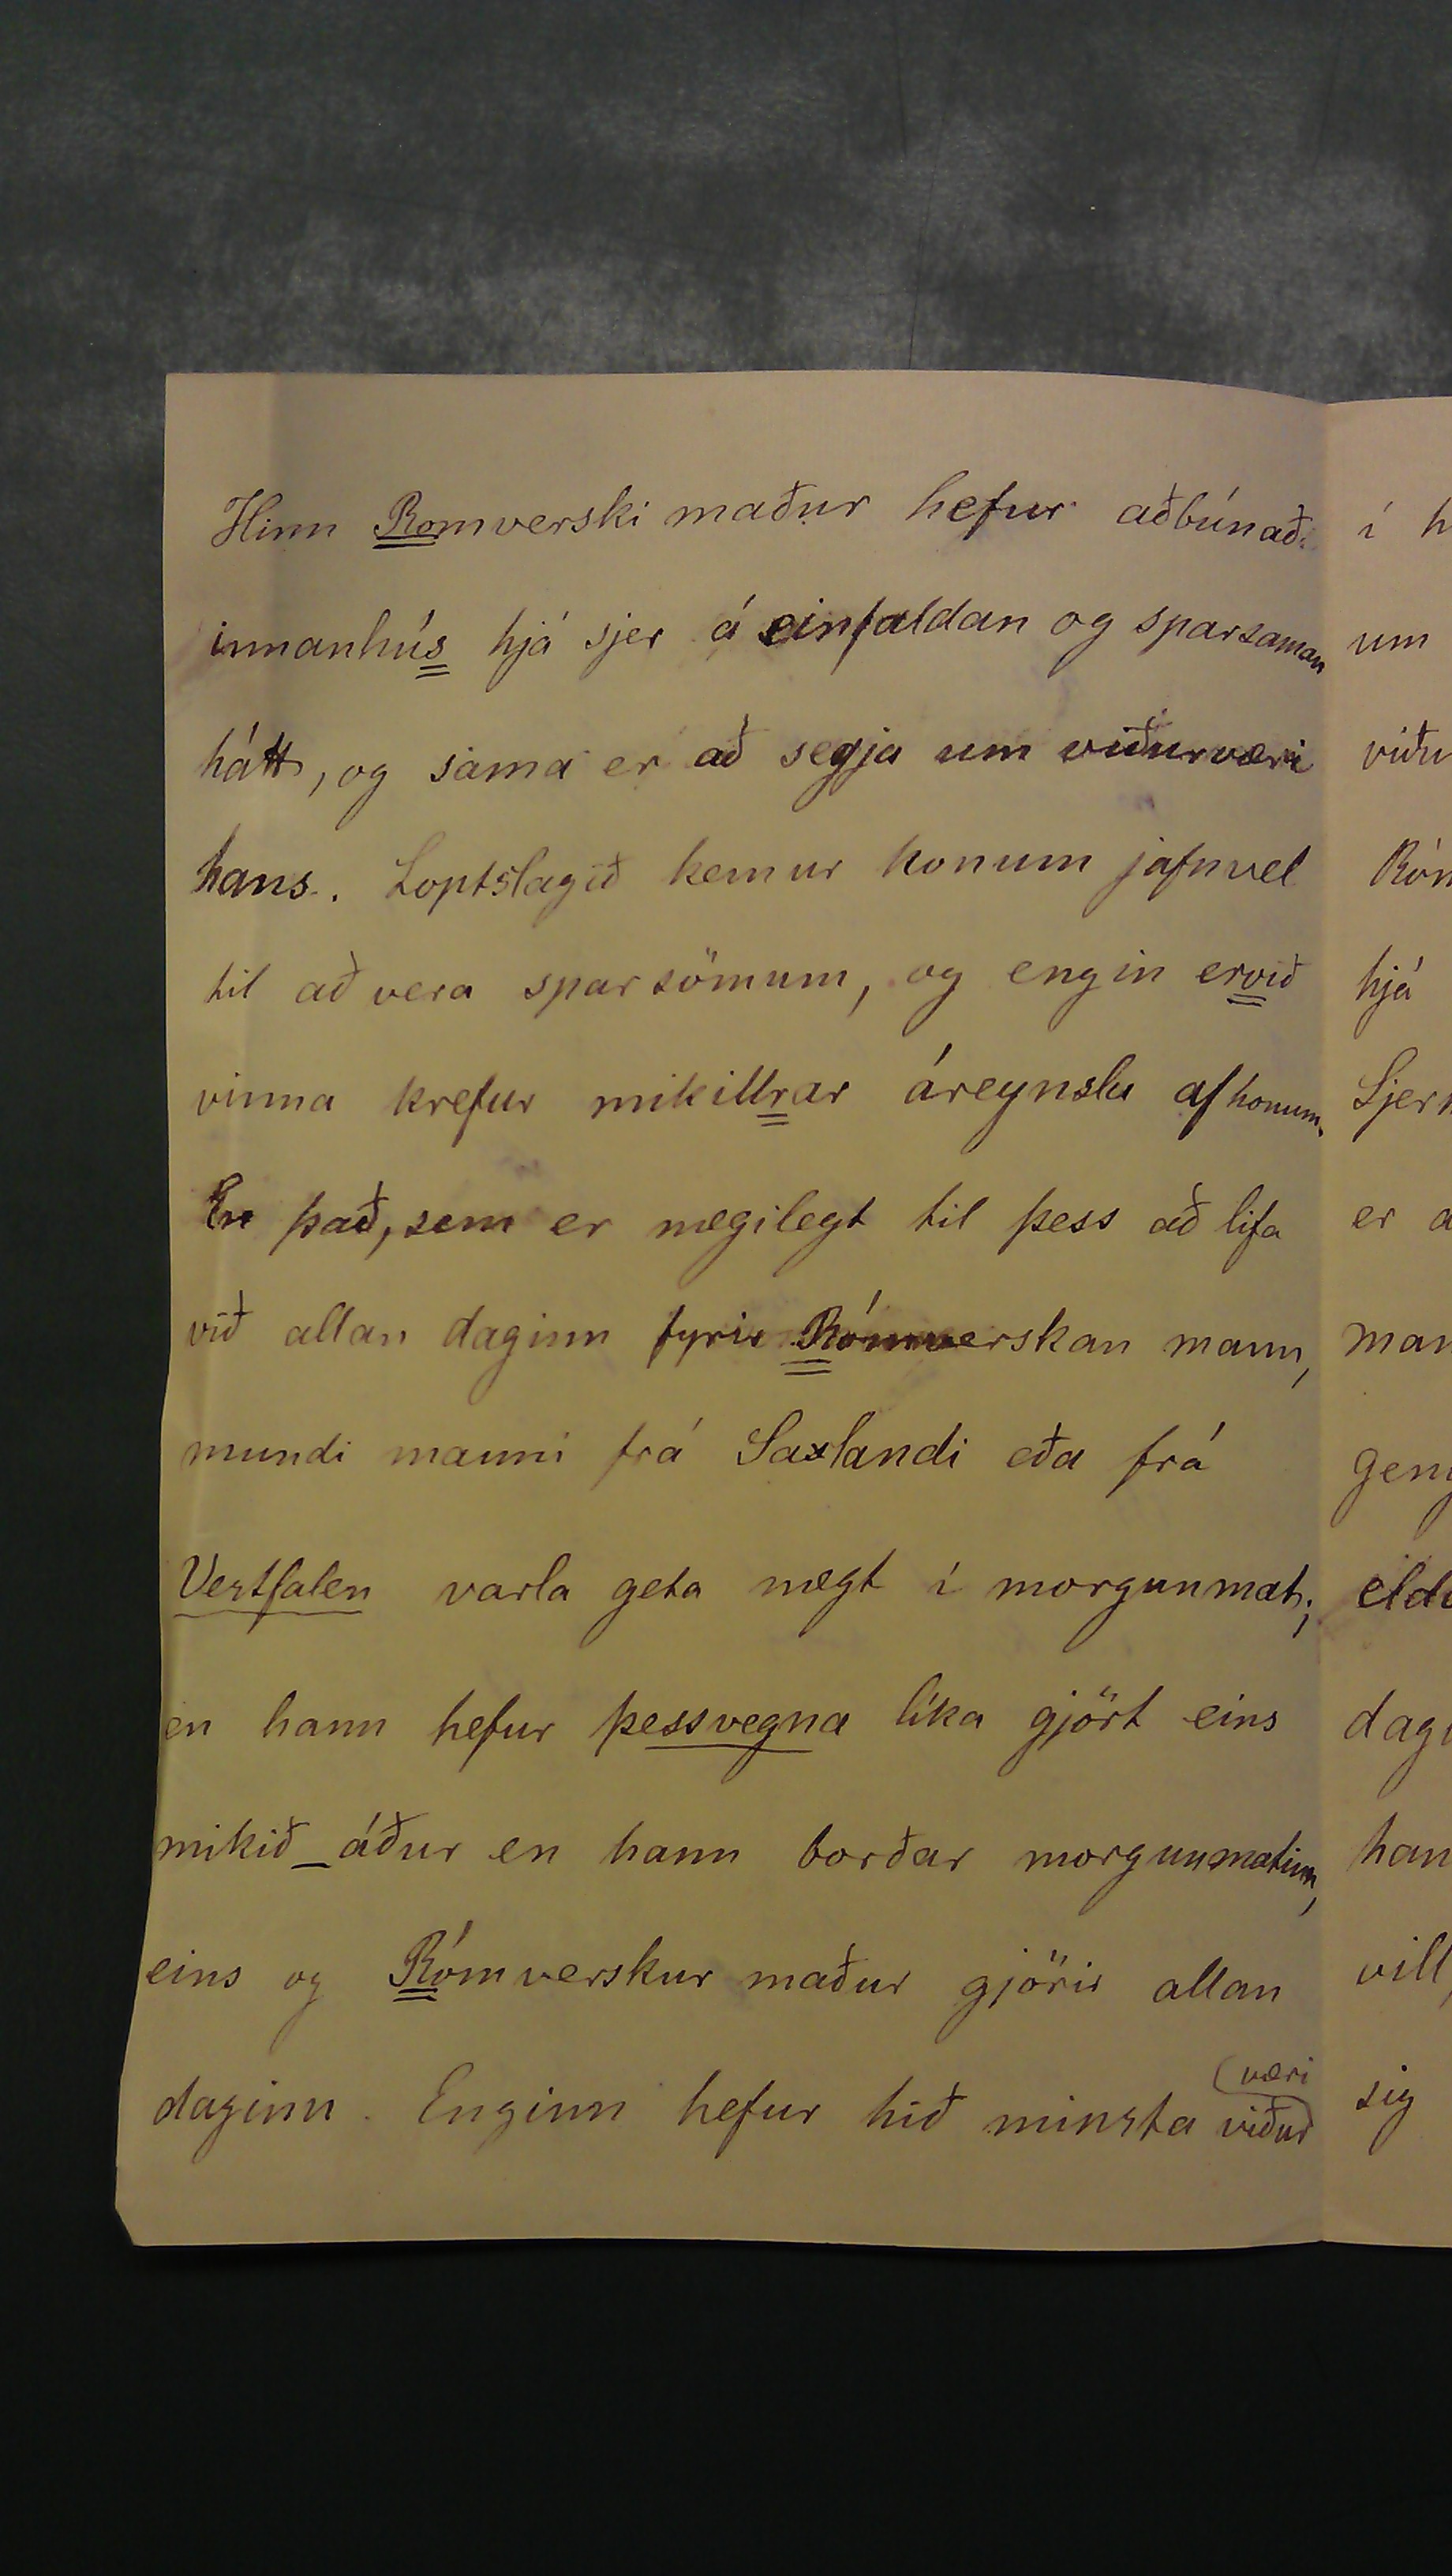 Hinn Romverski maður hefur aðbúnað
innanhús hjá sjer á einfaldan og sparsaman
hátt, og sama er að segja um viðurværi
hans. Loptslagið kemur honum jafnvel
til að vera sparsömum, og engin ervið
vinna krefur mikillrar áreynslu af honum.
En það, sem er nægilegt til þess að lifa
við allan daginn fyrir Rómverskan mann,
mundi manni frá Saxlandi eða frá
Vestfalen varla geta nægt í morgunmat;
en hann hefur þessvegna líka gjört eins
mikið áður en hann borðar morgunmatinn,
eins og Rómverskur maður gjörir allan
daginn. Enginn hefur hið minsta viður
væri
í h
um
viðu
Róm
hjá
Sjer
er a
man
geng
eld
dag
han
vill,
sig